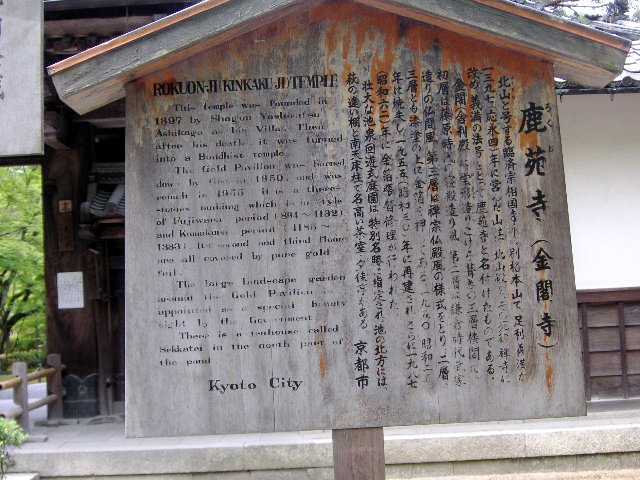 ROKUON-JI (KINKAKU-JI) TEMPLE
This temple was founded in
1397 by Shogun Yoshimitsu
Ashikaga as his Villa. Then
after his death, it was turned
into a Buddhist temple.
The Gold Pavilion was burned
down by fire in 1950, and was
rebuilt in 1955. It is a three-
stories building which is in style
of Fujiwara period (894~1192)
and Kamakura period (1185~
1333). Its second and third floors
are all covered by pure gold
foil.
The large landscape garden
around the Gold Pavilion is
appointed as a special beauty
sight by the Government.
There is a teahouse called
Sekkatei in the north part of
the pond.
Kyoto City
鹿苑寺(金閣寺)
ろくおん
北山と号する臨済宗相国寺派の別格本山で、足利義満が
一三九七(応永四)年に営んだ山荘
改め、義満の法号にちなんで鹿苑寺と名付けたものである。
金閣(舎利殿)は
三層楼閣で、
初層は藤原時代の寝殿造り風、第二層は鎌倉時代の武家
造りの仏間風、第三層は禅宗仏殿風の様式をとり、二層
三層とも漆塗の上に金箔を押してある。一九五〇(昭和二五)
年に焼失し、一九五五(昭和三〇)年に再建され、さらに一九八七
(昭和六二)年に金箔張替修理が行われた。
壮大な池泉回遊式庭園は特別名勝に指定され、池の北方には
萩の違い棚と南天床柱で名高い茶室夕佳亭がある。
京都市